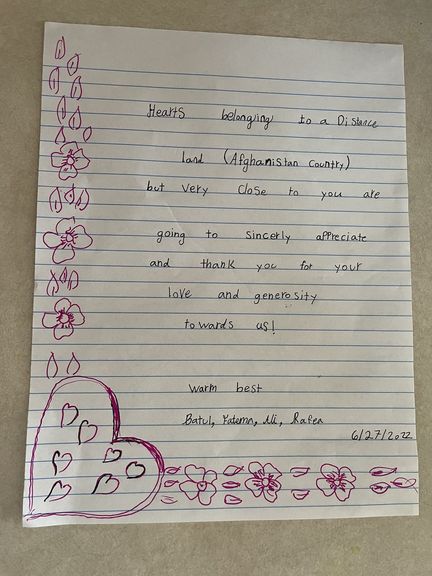 Hearts belonging to a Distance
land (Afghanistan Country)
but very close to you are
going to sincerly appreciate
and thank you for your
love and generosity
towards us!
warm best
Batul, Fatema, Ali, Rafea
6/27/2022